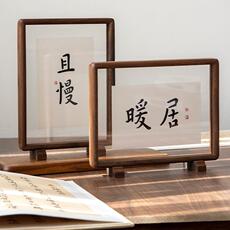 且慢
暖居